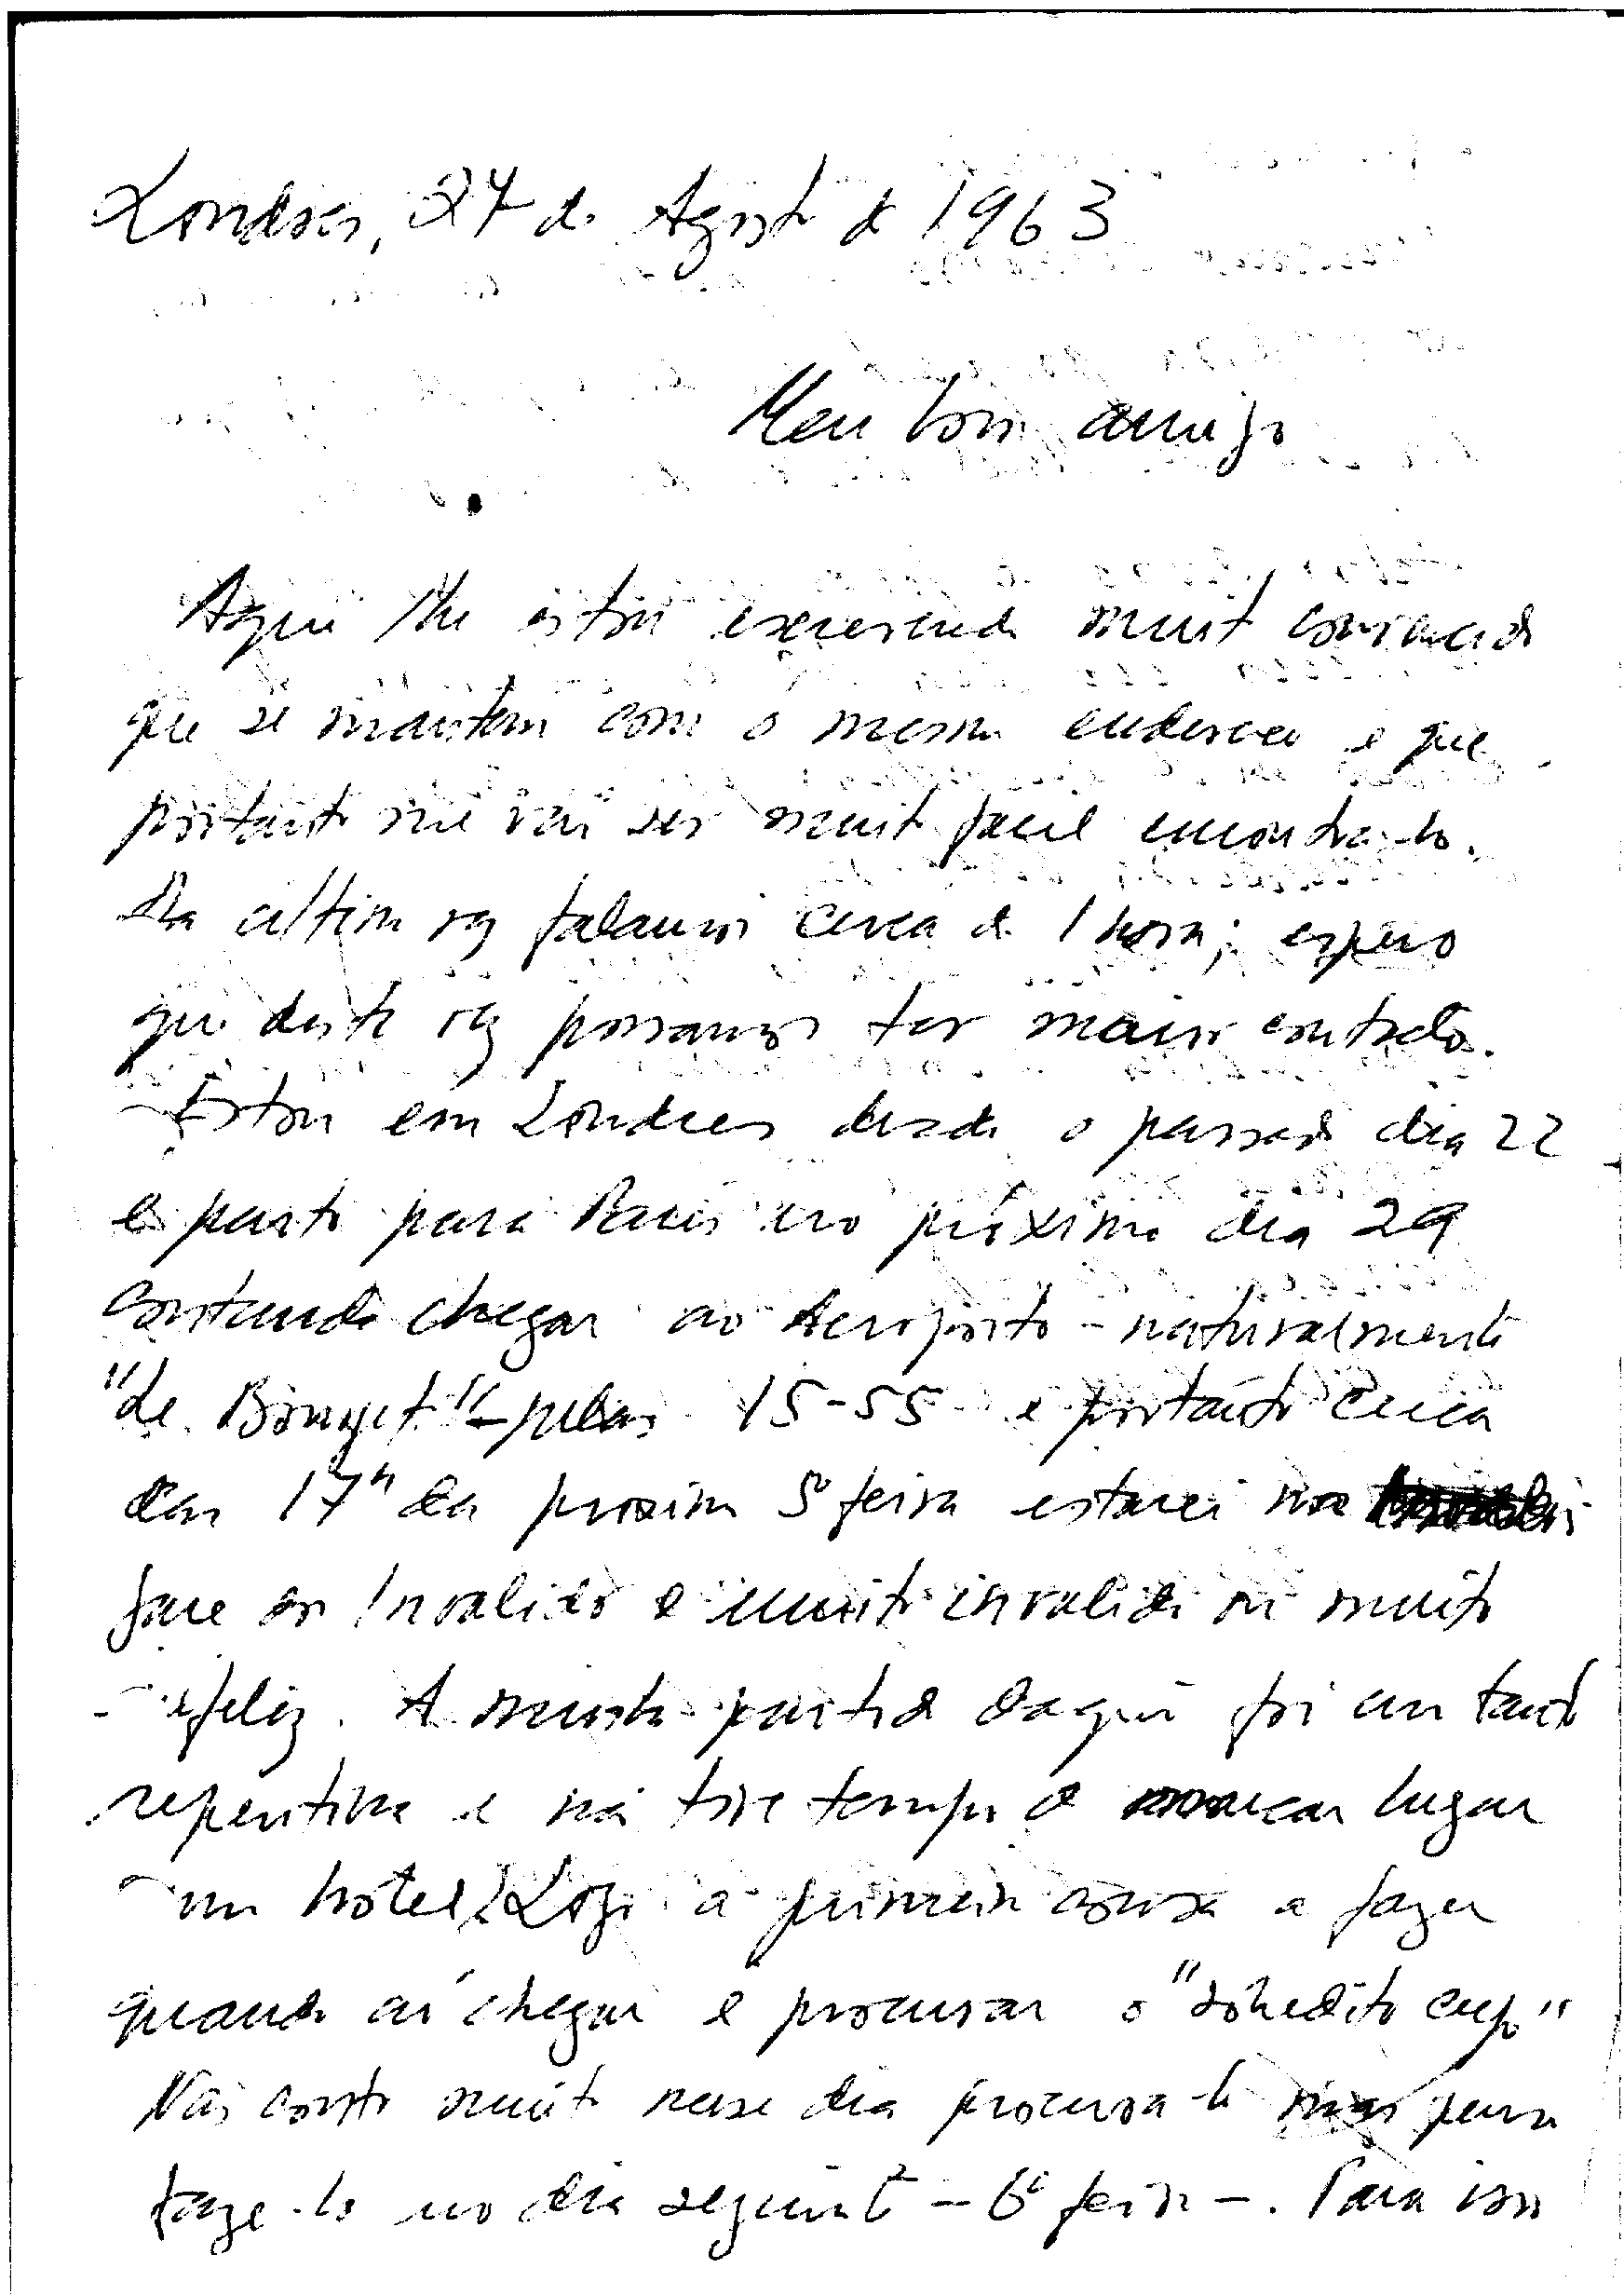 Londres, 27 de Agosto de 1963
Meu bom amigo
Aqui lhe estou escrevendo muito convencido
que se mantem com o mesmo endereço e que
portanto me vai ser muito facil encontra-lo.
Da ultima vez falamos cerca de 1 hora; espero
que desta vez possamos ter maior contacto.
Estou em Londres desde o passado dia 22
e parto para Paris no próximo dia 29
contando chegar ao Aeroporto - naturalmente
"de Bourget" - pelas 15-55 e portanto cerca
das 17h da proxima 5ª feira estarei nos
gare dos Invalides e muito invalido ou muito
infeliz. A minha partida daqui foi um tanto
repentina e não tive tempo de marcar lugar
num hotel. Logo a primeira coisa a fazer
quando ai chegar é procurar o "sobredito cujo"
Não conto muito nesse dia procura-lo mas penso
faze-lo no dia seguinte - 6ª feira -. Para isso